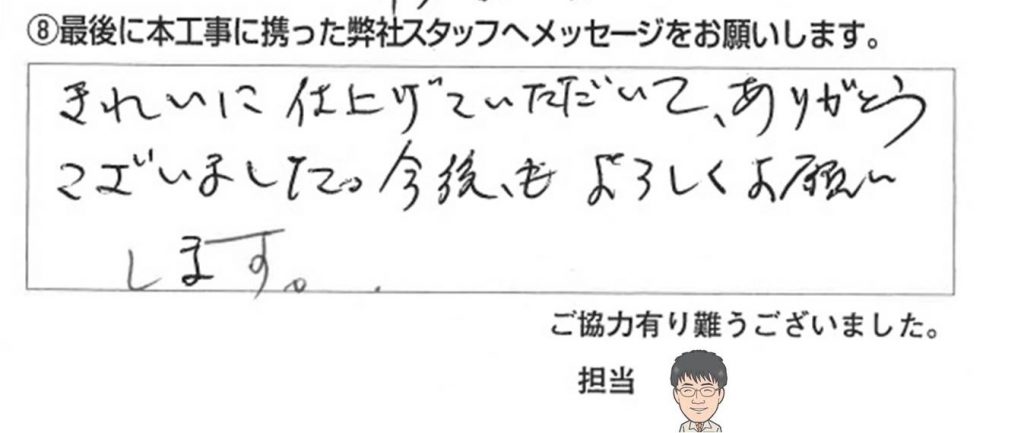 ⑧最後に本工事に携った弊社スタッフへメッセージをお願いします。
きれいに仕上げていただいて、ありがとう
ございました。今後もよろしくお願い
します。
ご協力有り難うございました。
担当